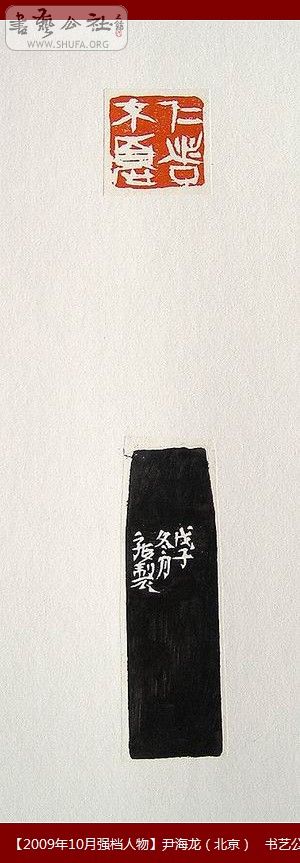 書藝公社
WWW.SHUFA.ORG
仁者
不憂
戊子
冬月
製
【2009年10月强档人物】尹海龙（北京） 书艺公